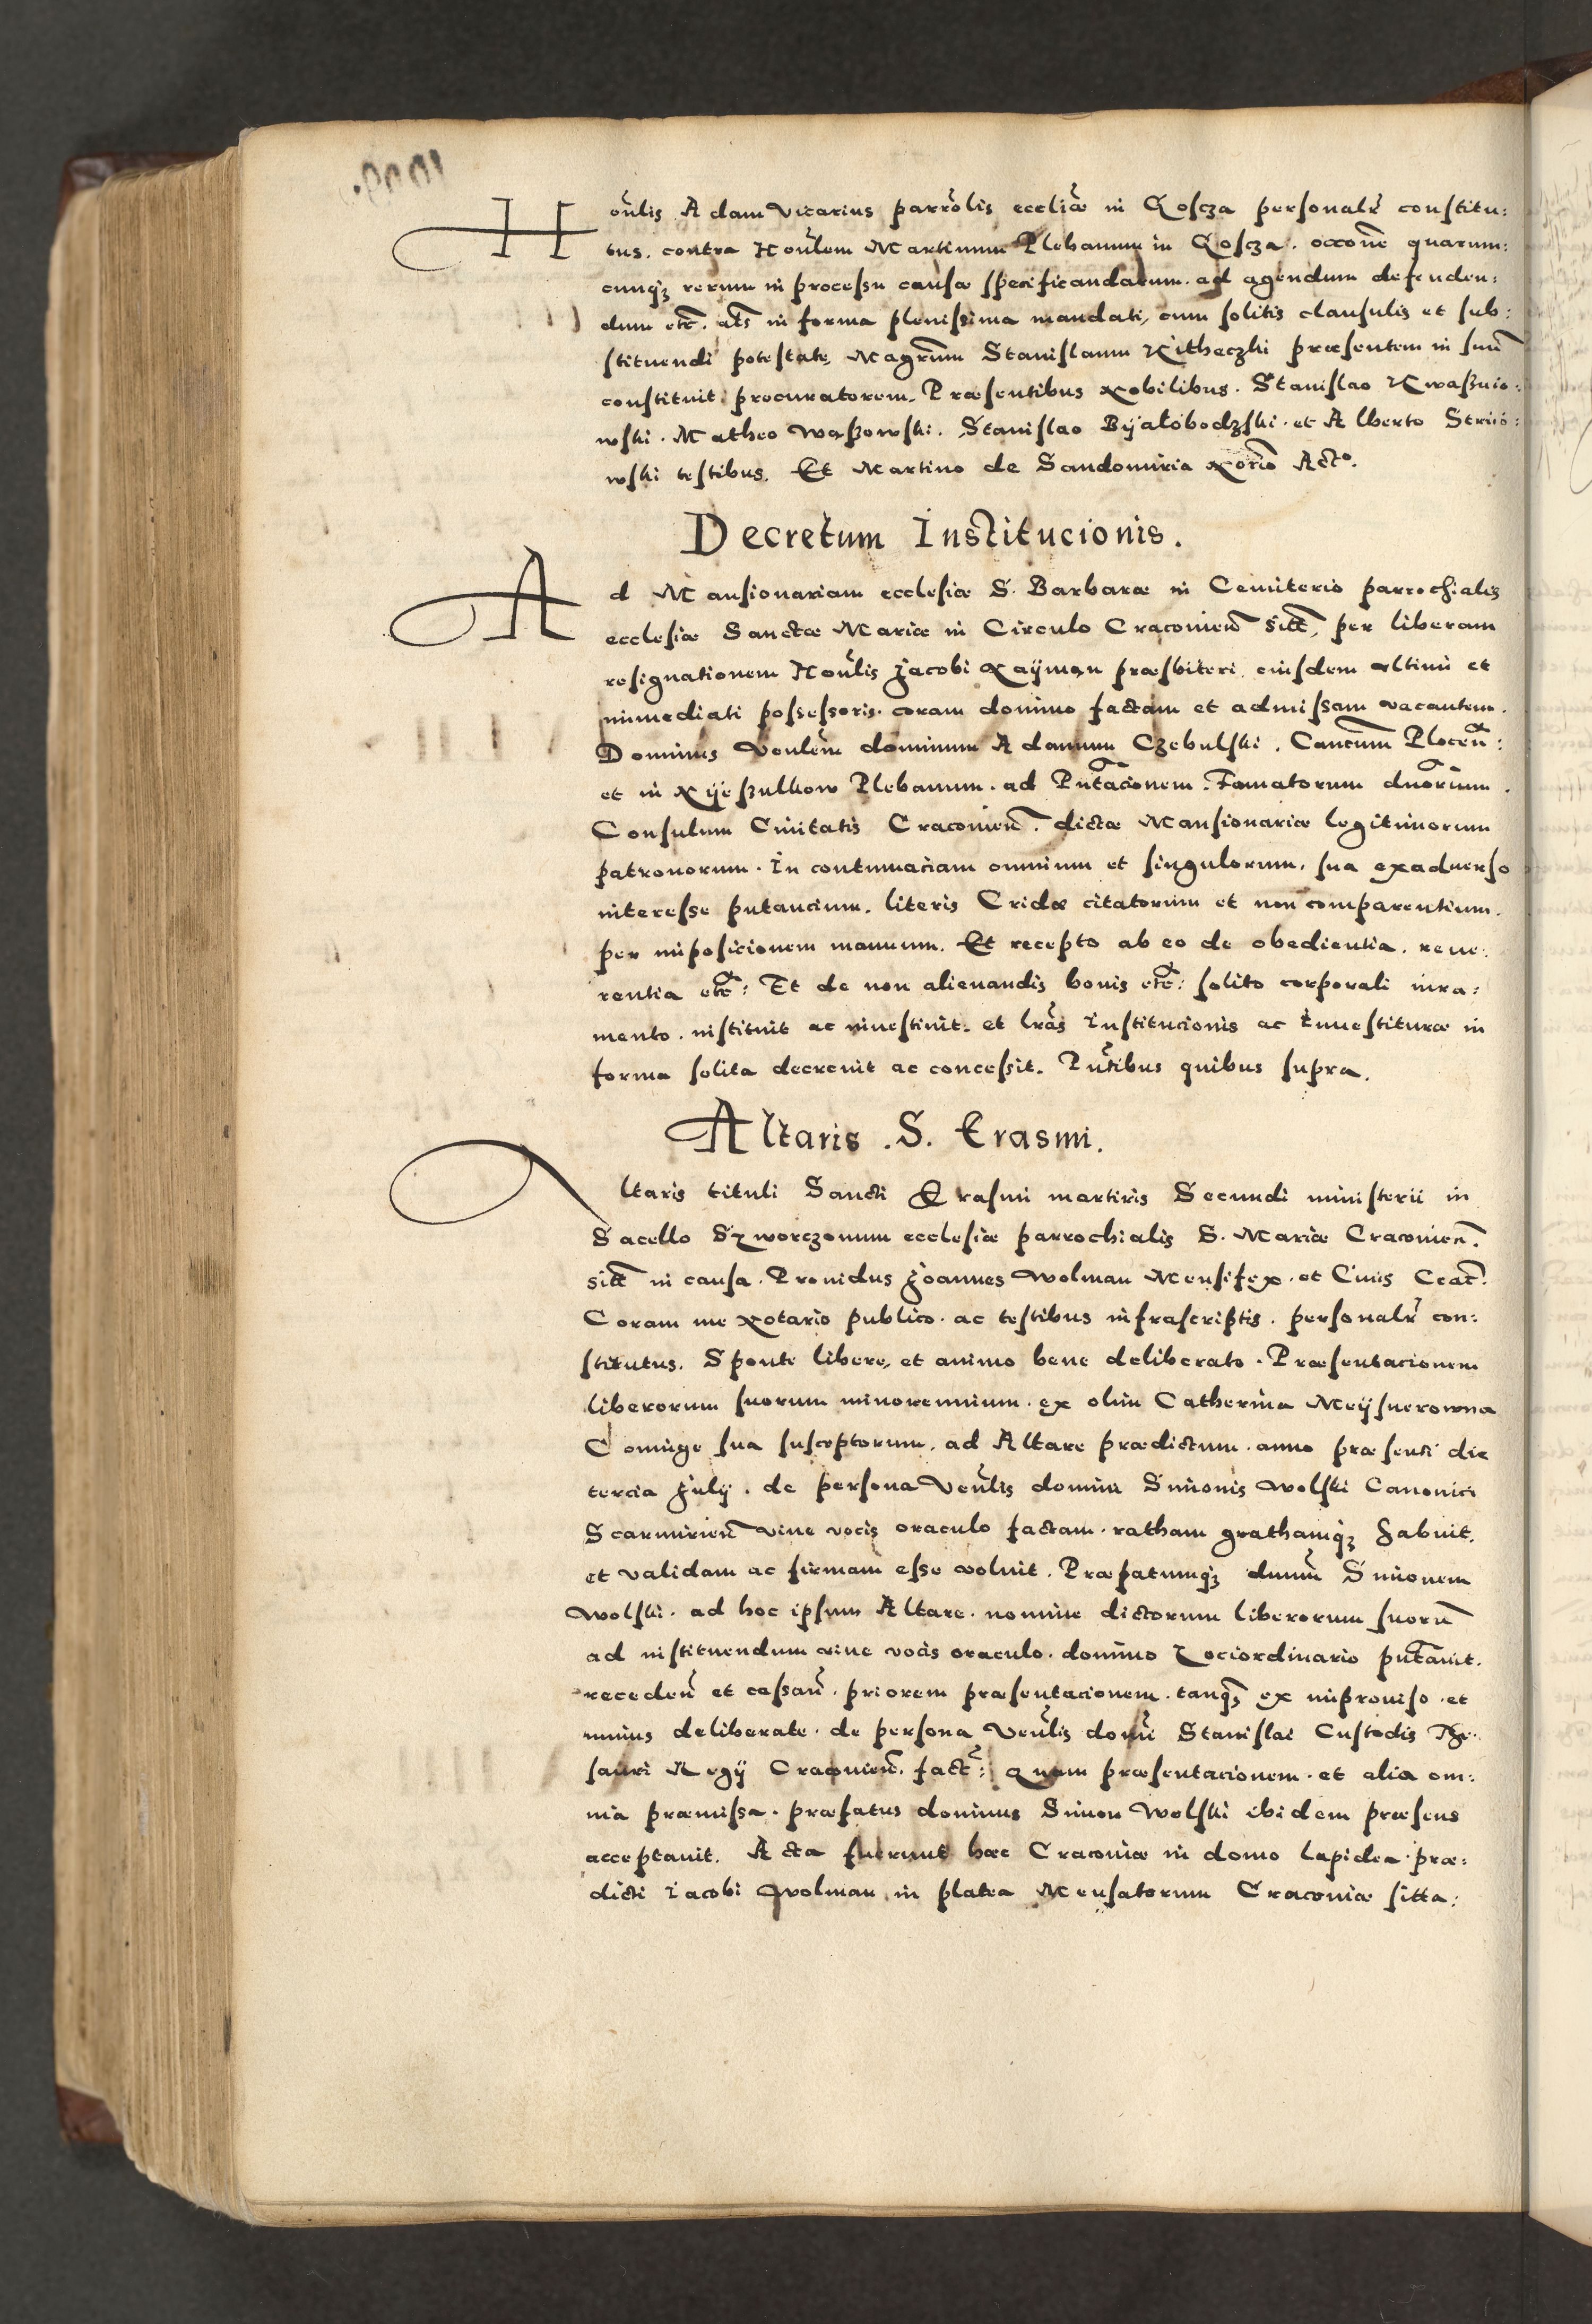 Honlis Adam Vicarius parrolis eccliæ in Koscza personalr constitu:
tus. contra Honlem Martinum Plebanum in Koscza. occone quarum:
cunqꝫ rerum in processu causæ specificandarum. ad agendum defenden:
dum etc. als in forma plenissima mandati, cum solitis clausulis et sub:
stituendi potestate, Magrum Stanislaum præsentem in suu
constituit procuratorem. Præsentibus Nobilibus. Stanislao Kwaßnio:
wski. Matheo Waßowski. Stanislao Byalobodzski. et Alberto Striio:
wski testibus. Et Martino de Sandomiria Norio Acto.
Decretum Institucionis.
Ad Mansionariam ecclesiæ S. Barbaræ in Cemiterio parrochialis
ecclesiæ Sanctæ Mariæ in Circulo Cracouien sitt, per liberam
resignationem Honlis Jacobi Nayman præsbiteri, eiusdem vltimi et
immediati possessoris. coram domino factam et admissam vacantem.
Dominus Venlem dominum Adamum Czebulski. Canonicum Plocen:
et in Plebanum. ad Pntacionem. Famatorum dnorum.
Consulum Ciuitatis Cracouien. dictæ Mansionariæ legitimorum
patronorum. In contumaciam omnium et singulorum. sua exaduerso
interesse putancium. literis Cridæ citatorum et non comparentium.
per imposicionem manuum. Et recepto ab eo de obedientia. reue:
rentia etc: Et de non alienandis bonis etc: solito corporali iura:
mento. instituit ac inuestiuit. et lras Institucionis ac Inuestituræ in
forma solita decreuit ac concessit. Pntibus quibus supra.
Altaris .S. Erasmi.
Altaris tituli Sancti Erasmi martiris Secundi ministerii in
Sacello Szworczonum ecclesiæ parrochialis S. Mariæ Cracouien.
sitt in causa. Prouidus Joannes Wolman Mensifex. et Ciuis Crac.
Coram me Notario publico. ac testibus infrascriptis. personalr con:
stitutus. Sponte libere, et animo bene deliberato. Præsentacionem
liberorum suorum minorennium. ex olim Catherina Meysnerowna
Coniuge sua susceptorum, ad Altare prædictum. anno præsenti die
tercia July. de persona Venlis domini Simonis Wolski Canonici
Scarmirien viue vocis oraculo factam. ratham grathamqꝫ habuit,
et validam ac firmam esse voluit. Præfatumqꝫ dnum Simonem
Wolski. ad hoc ipsum Altare. nomine dictorum liberorum suoru
ad instituendum viue vocis oraculo. domino Lociordinario pntauit.
receden et cassan. priorem præsentacionem. tanqꝫ ex improuiso. et
minus deliberate. de persona Venlis domi Stanislai Custodis The:
sauri Regy Cracouien. fact: Quam præsentacionem. et alia om:
nia præmissa. præfatus dominus Simon Wolski ibidem præsens
acceptauit. Acta fuerunt hæc Cracouiæ in domo lapidea. præ:
dicti Iacobi Wolman in platea Mensatorum Cracouiæ sitta: